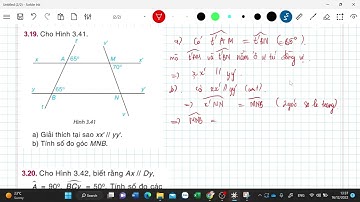 3.19. Cho Hình 3.41.
x A M x'
65°
70°
y B N y'
65°
Hình 3.41
a) Giải thích tại sao xx' // yy'.
b) Tính số đo góc MNB.
3.20. Cho Hình 3.42, biết rằng Ax // Dy,
A = 90°, BCy = 50°. Tính số đo các
a) Có t'AM = t'BN (= 65°).
mà t'AM và t'BN nằm ở vị trí đồng vị
=> xx' // yy'
b) Có xx' // yy' (cmt)
=> x'MN = MNB (2 góc so le trong)
=> MNB =